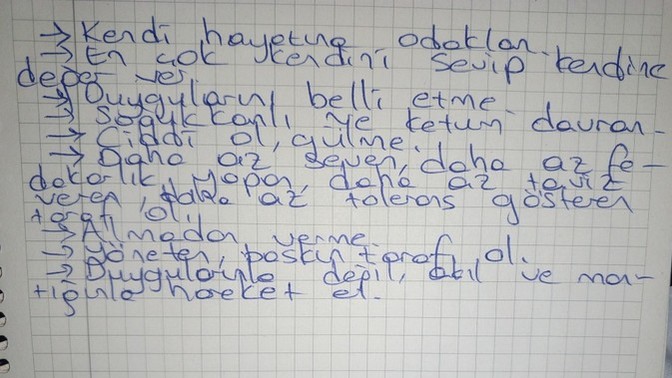 → Kendi hayatına odaklan.
→ En çok kendini sevip kendine
değer ver.
→ Duygularını belli etme.
→ Soğukkanlı ve ketum davran.
→ Ciddi ol, gülme.
→ Daha az seven, daha az fe-
dakarlık yapan, daha az taviz
veren, daha az tolerans gösteren
taraf ol.
→ Almadan verme.
→ Yöneten, baskın taraf ol.
→ Duygularınla değil, akıl ve man-
tığınla hareket et.